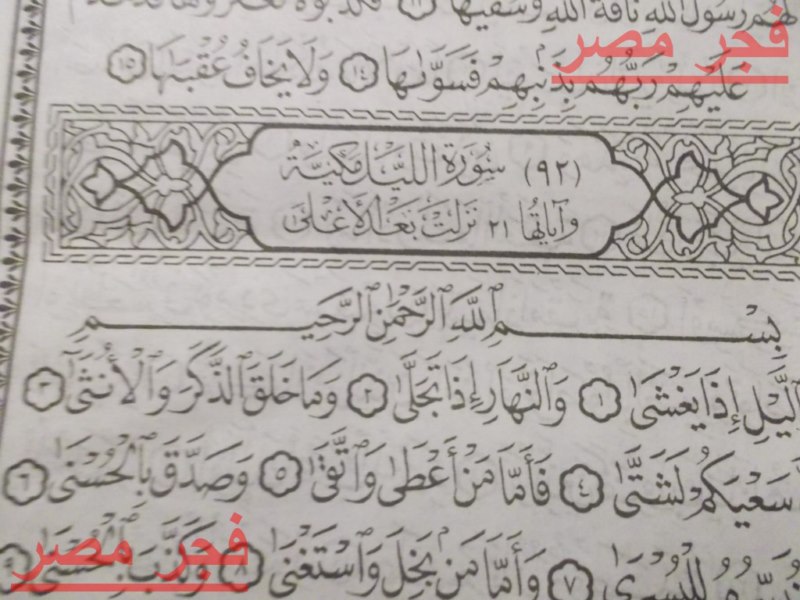 فجر مصر
هُمْ رَسُولُ ٱللَّهِ نَاقَةَ ٱللَّهِ وَسُقْيَٰهَا ١٣
عَلَيْهِمْ رَبُّهُم بِذَنۢبِهِمْ فَسَوَّىٰهَا ١٤ وَلَا يَخَافُ عُقْبَٰهَا ١٥
(٩٢) سُورَةُ اللَّيْلِ مَكِّيَّةٌ
وَآيَاتُهَا ٢١ نَزَلَتْ بَعْدَ الأَعْلَىٰ
بِسْمِ ٱللَّهِ ٱلرَّحْمَٰنِ ٱلرَّحِيمِ
ٱلَّيْلِ إِذَا يَغْشَىٰ ١ وَٱلنَّهَارِ إِذَا تَجَلَّىٰ ٢ وَمَا خَلَقَ ٱلذَّكَرَ وَٱلْأُنثَىٰٓ ٣
سَعْيَكُمْ لَشَتَّىٰ ٤ فَأَمَّا مَنْ أَعْطَىٰ وَٱتَّقَىٰ ٥ وَصَدَّقَ بِٱلْحُسْنَىٰ ٦
لِلْيُسْرَىٰ ٧ وَأَمَّا مَنۢ بَخِلَ وَٱسْتَغْنَىٰ ٨ وَكَذَّبَ بِٱلْحُسْنَىٰ ٩
فجر مصر